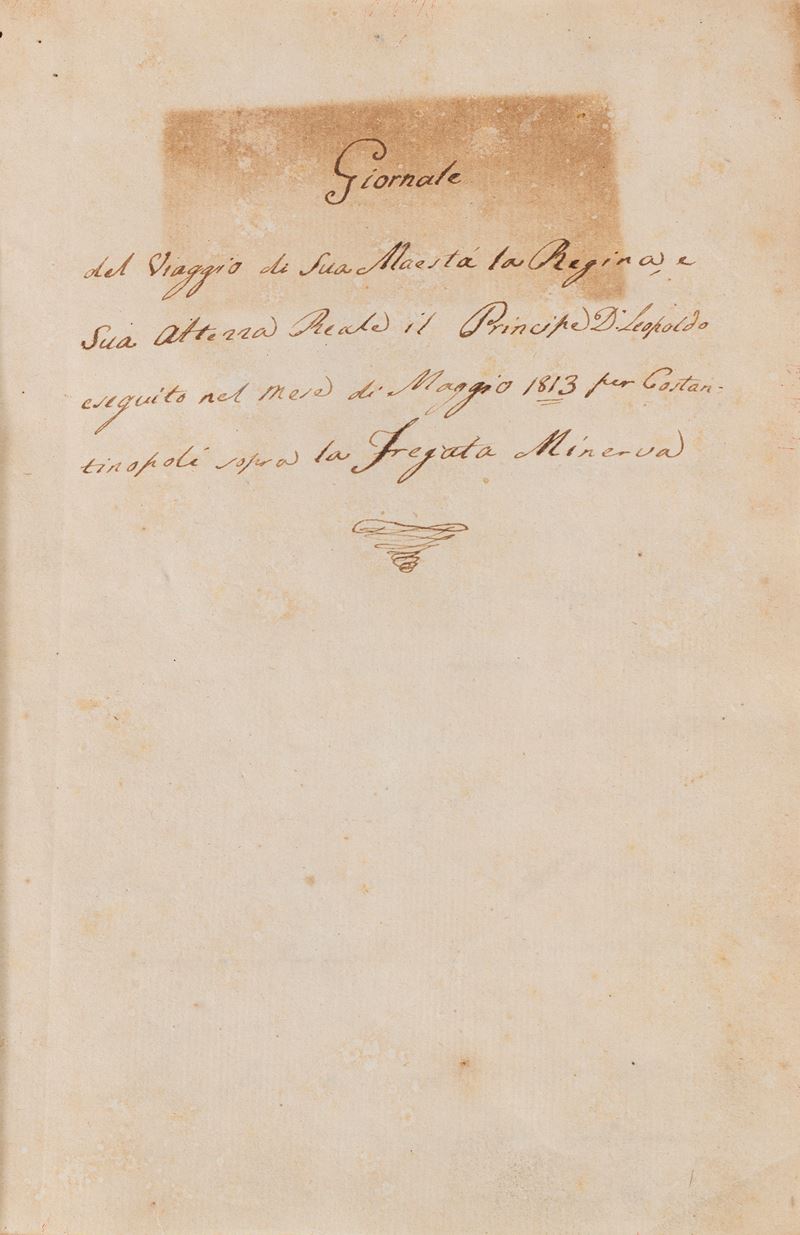 Giornale
del Viaggio di Sua Maestá la Regina, e
Sua Altezza Reale il Principe D. Leopoldo
eseguito nel mese di Maggio 1813 per Costan-
tinopoli sopra la Fregata Minerva